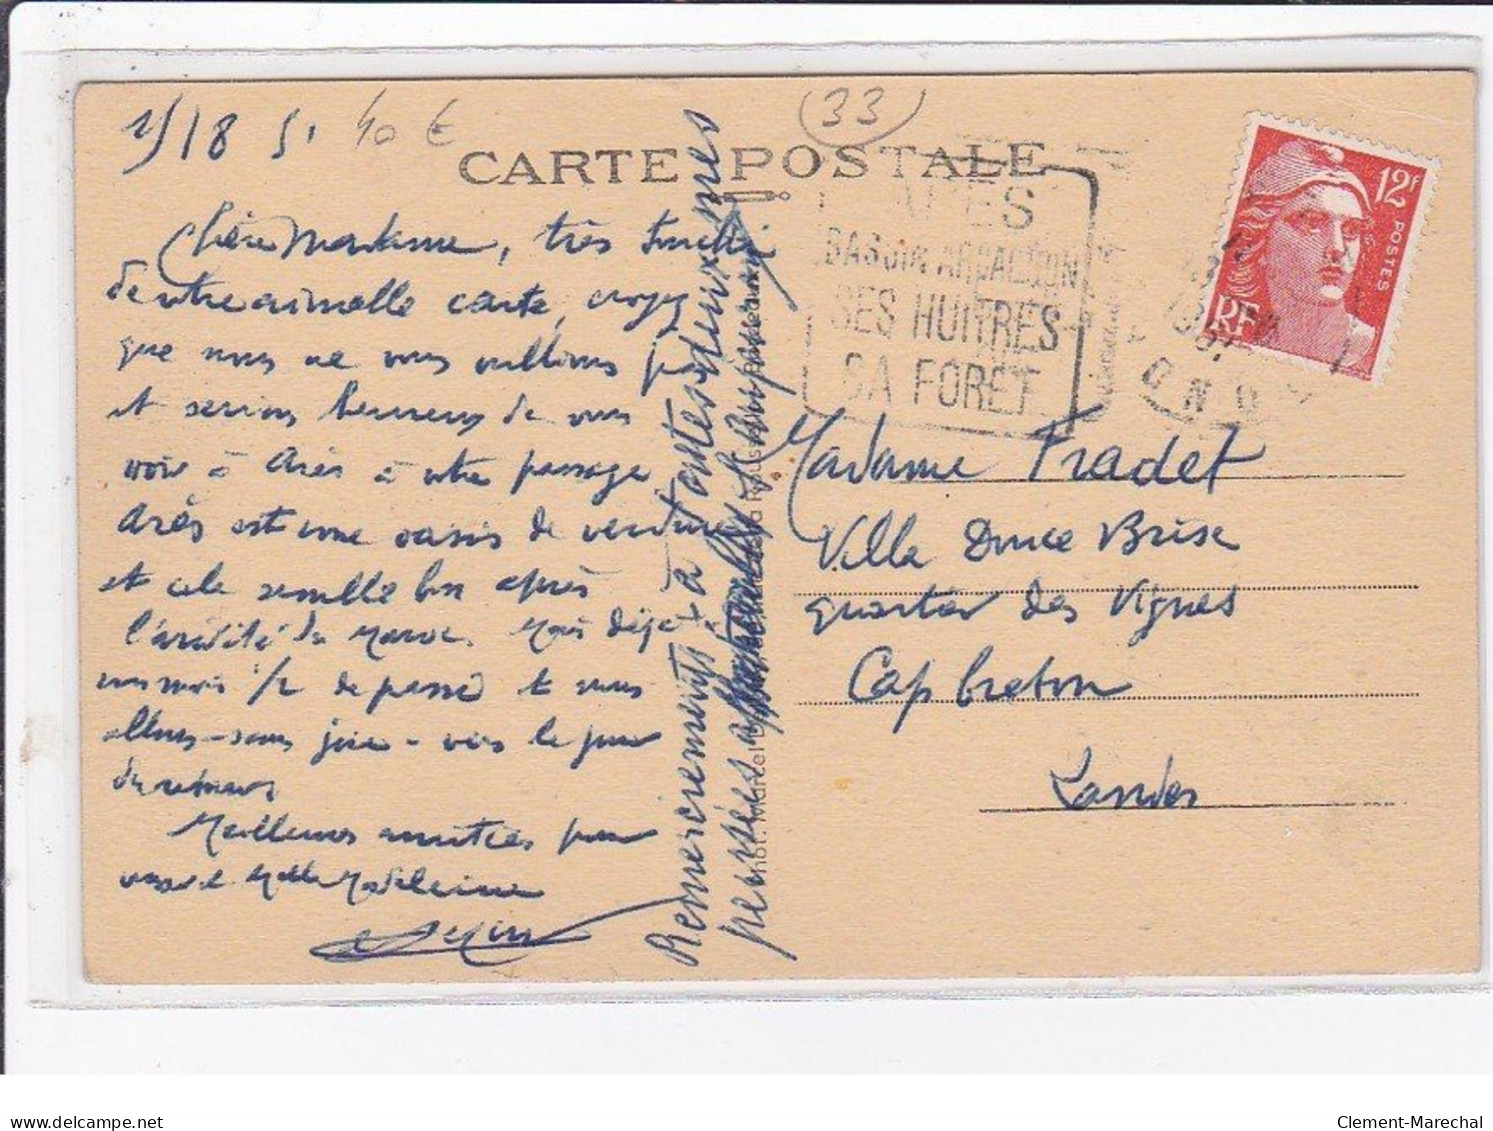 18 51 40 €
33
CARTE POSTALE
ARES
BASSIN ARCACHON
SES HUITRES
SA FORET
12F
POSTES
RF
GIRONDE
Chère Madame, très touchés
de votre aimable carte, croyez
que nous ne vous oublions pas
et serions heureux de vous
voir à Arès à votre passage
Arès est une oasis de verdure
et cela semble bon après
l'aridité du Maroc. Mais déjà
un mois 1/2 de passé et nous
allons - sans joie - vers le jour
du retour
Meilleures amitiés pour
vous et Melle Madeleine
Remerciements à toutes deux mes
pensées
Phot. Marcel
Madame Fradet
Villa Douce Brise
quartier des Vignes
Cap breton
Landes
Clement-Marechal